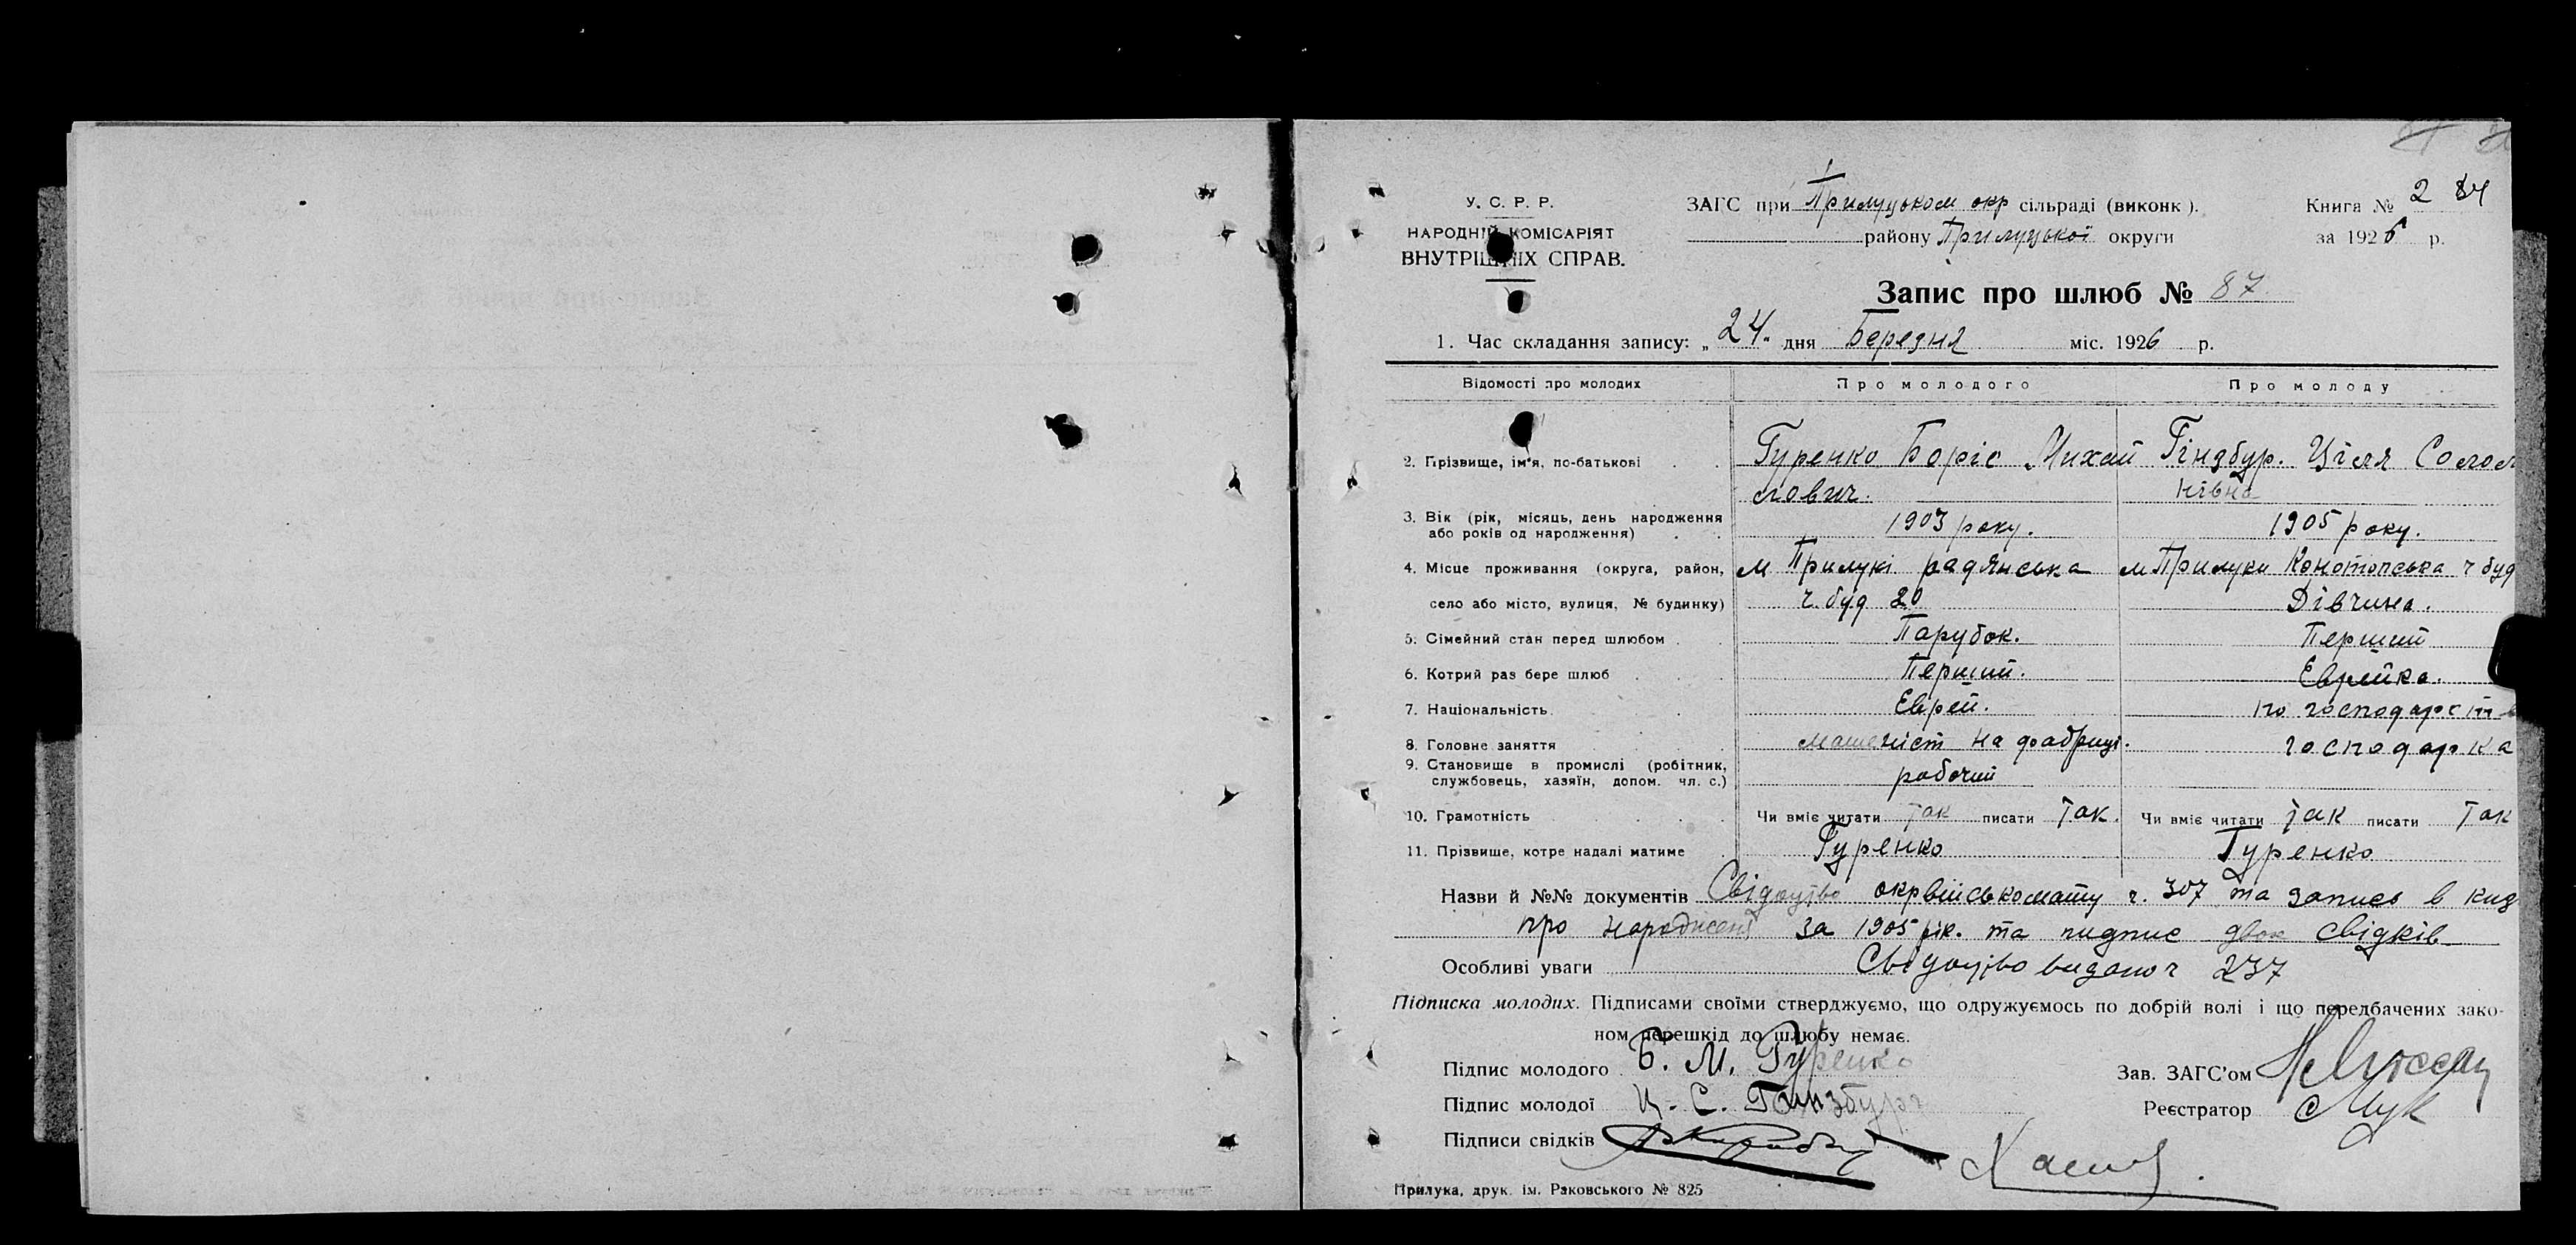 У. С. Р. Р.
НАРОДНІЙ КОМІСАРІЯТ
ВНУТРІШНІХ СПРАВ.
ЗАГС при Прилуцьком окр сільраді (виконк).
району Прилуцької округи
Книга № 2 84
за 1926 р.
Запис про шлюб № 87
1. Час складання запису: „ 24. дня Березня міс. 1926 р.
Відомості про молодих Про молодого Про молоду
2. Прізвище, ім'я, по-батькові Гуренко Боріс Михай Гінзбур. Ціля Солом
лович. нівна
3. Вік (рік, місяць, день народження 1903 року. 1905 року.
або років од народження)
4. Місце проживання (округа, район, м Прилукі радянська м Прилуки Конотопська ч буд
село або місто, вулиця, № будинку) ч. буд 20 Дівчина.
5. Сімейний стан перед шлюбом Парубок. Перший
6. Котрий раз бере шлюб Перший. Еврейка.
7. Національність Еврей. по господарств
8. Головне заняття машеніст на фабриці. господарка
9. Становище в промислі (робітник, рабочий
службовець, хазяїн, допом. чл. с.)
10. Грамотність Чи вміє читати так писати так. Чи вміє читати так писати так
11. Прізвище, котре надалі матиме Гуренко Гуренко
Назви й №№ документів Свідоцтво окрвійськомату ч. 307 та запись в книз
про народженя за 1905 рік. та пидпис двох свідків
Особливі уваги Свідоцтво видано ч 237
Підписка молодих. Підписами своїми стверджуємо, що одружуємось по добрій волі і що передбачених зако-
ном перешкід до шлюбу немає.
Підпис молодого Б. М. Гуренко
Зав. ЗАГС'ом
Підпис молодої Ц. С. Гинзбург
Реєстратор
Підписи свідків
Прилука, друк. ім. Раковського № 825